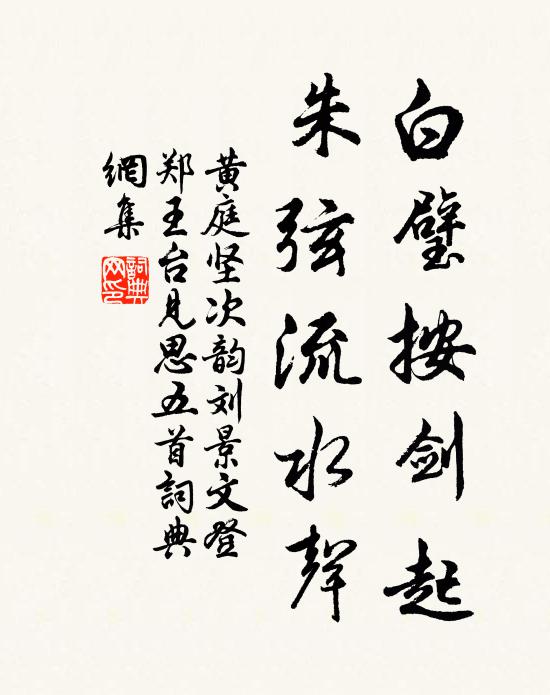 白璧按剑起
朱弦流水聲
黄庭坚次韵刘景文登
郑王台見思五首詞典
網集
詞典
网印